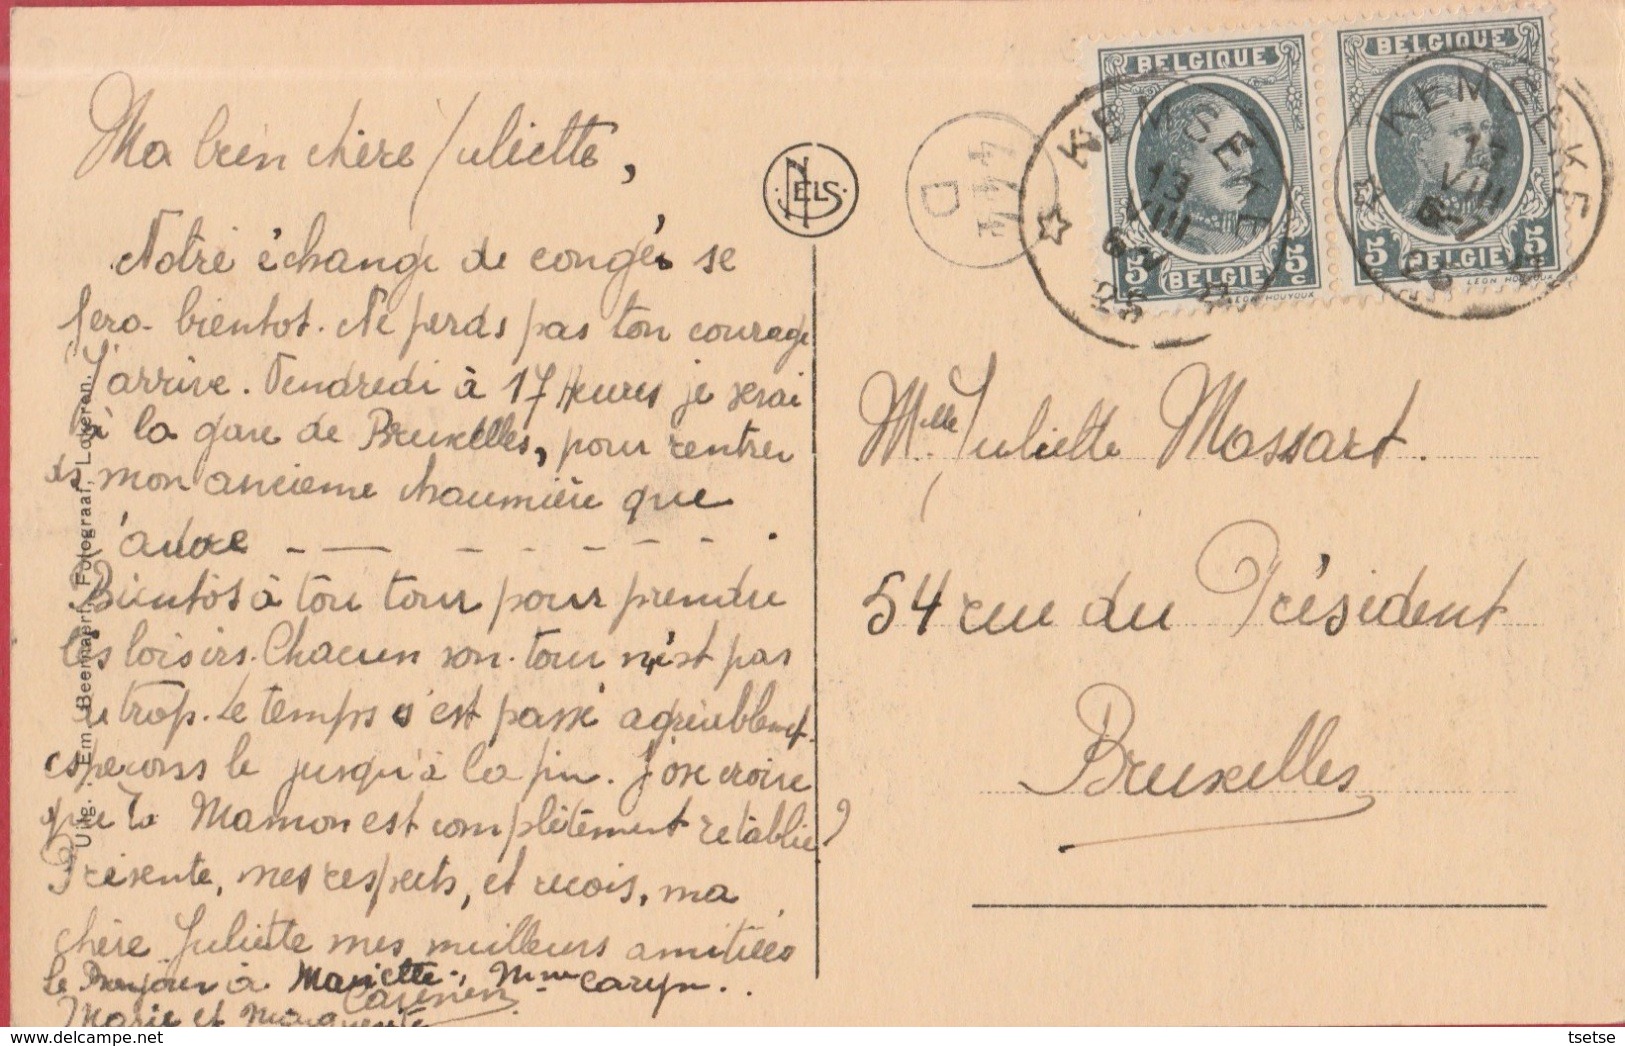 Ma bien chère Juliette,
Notre échange de congés se
fera bientot. Ne perds pas ton courage
J'arrive. Vendredi à 17 Heures je serai
à la gare de Bruxelles, pour rentrer
ds mon ancienne chaumière que
j'adore - — - - - - - .
Bientôt à ton tour pour prendre
les loisirs. Chacun son tour n'est pas
trop. Le temps s'est passé agréablement
esperons le jusqu'à la fin. J'ose croire
que ta Maman est complètement retablie?
Présente, mes respects, et reçois, ma
chère Juliette mes meilleurs amitiées
le Bonjour à Mariette, Mme
Carmen
Marie et Marguerite
Uitg. : Em. Beernaert, Fotograaf, Lokeren.
NELS
4414
D
BELGIQUE
KEMSEKE
13
VIII
5c BELGIE 5c
LEON HOUYOUX
BELGIQUE
KEMSEKE
13
VIII
5c BELGIE 5c
LEON HOUYOUX
Mlle Juliette Massart.
54 rue du Président
Bruxelles
tsetse